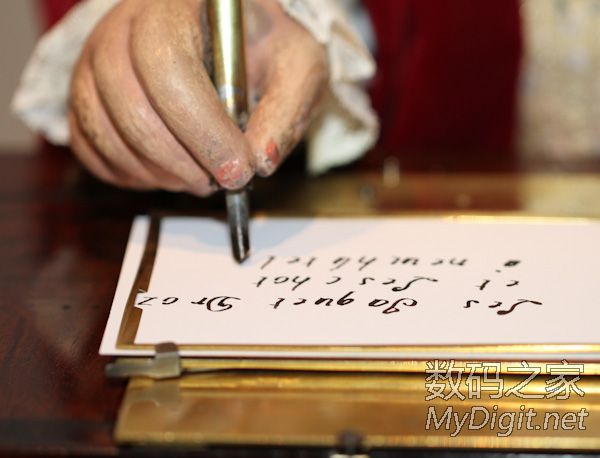 Les Jaquet Droz
et Les chot
à neuchâtel
数码之家
MyDigit.net